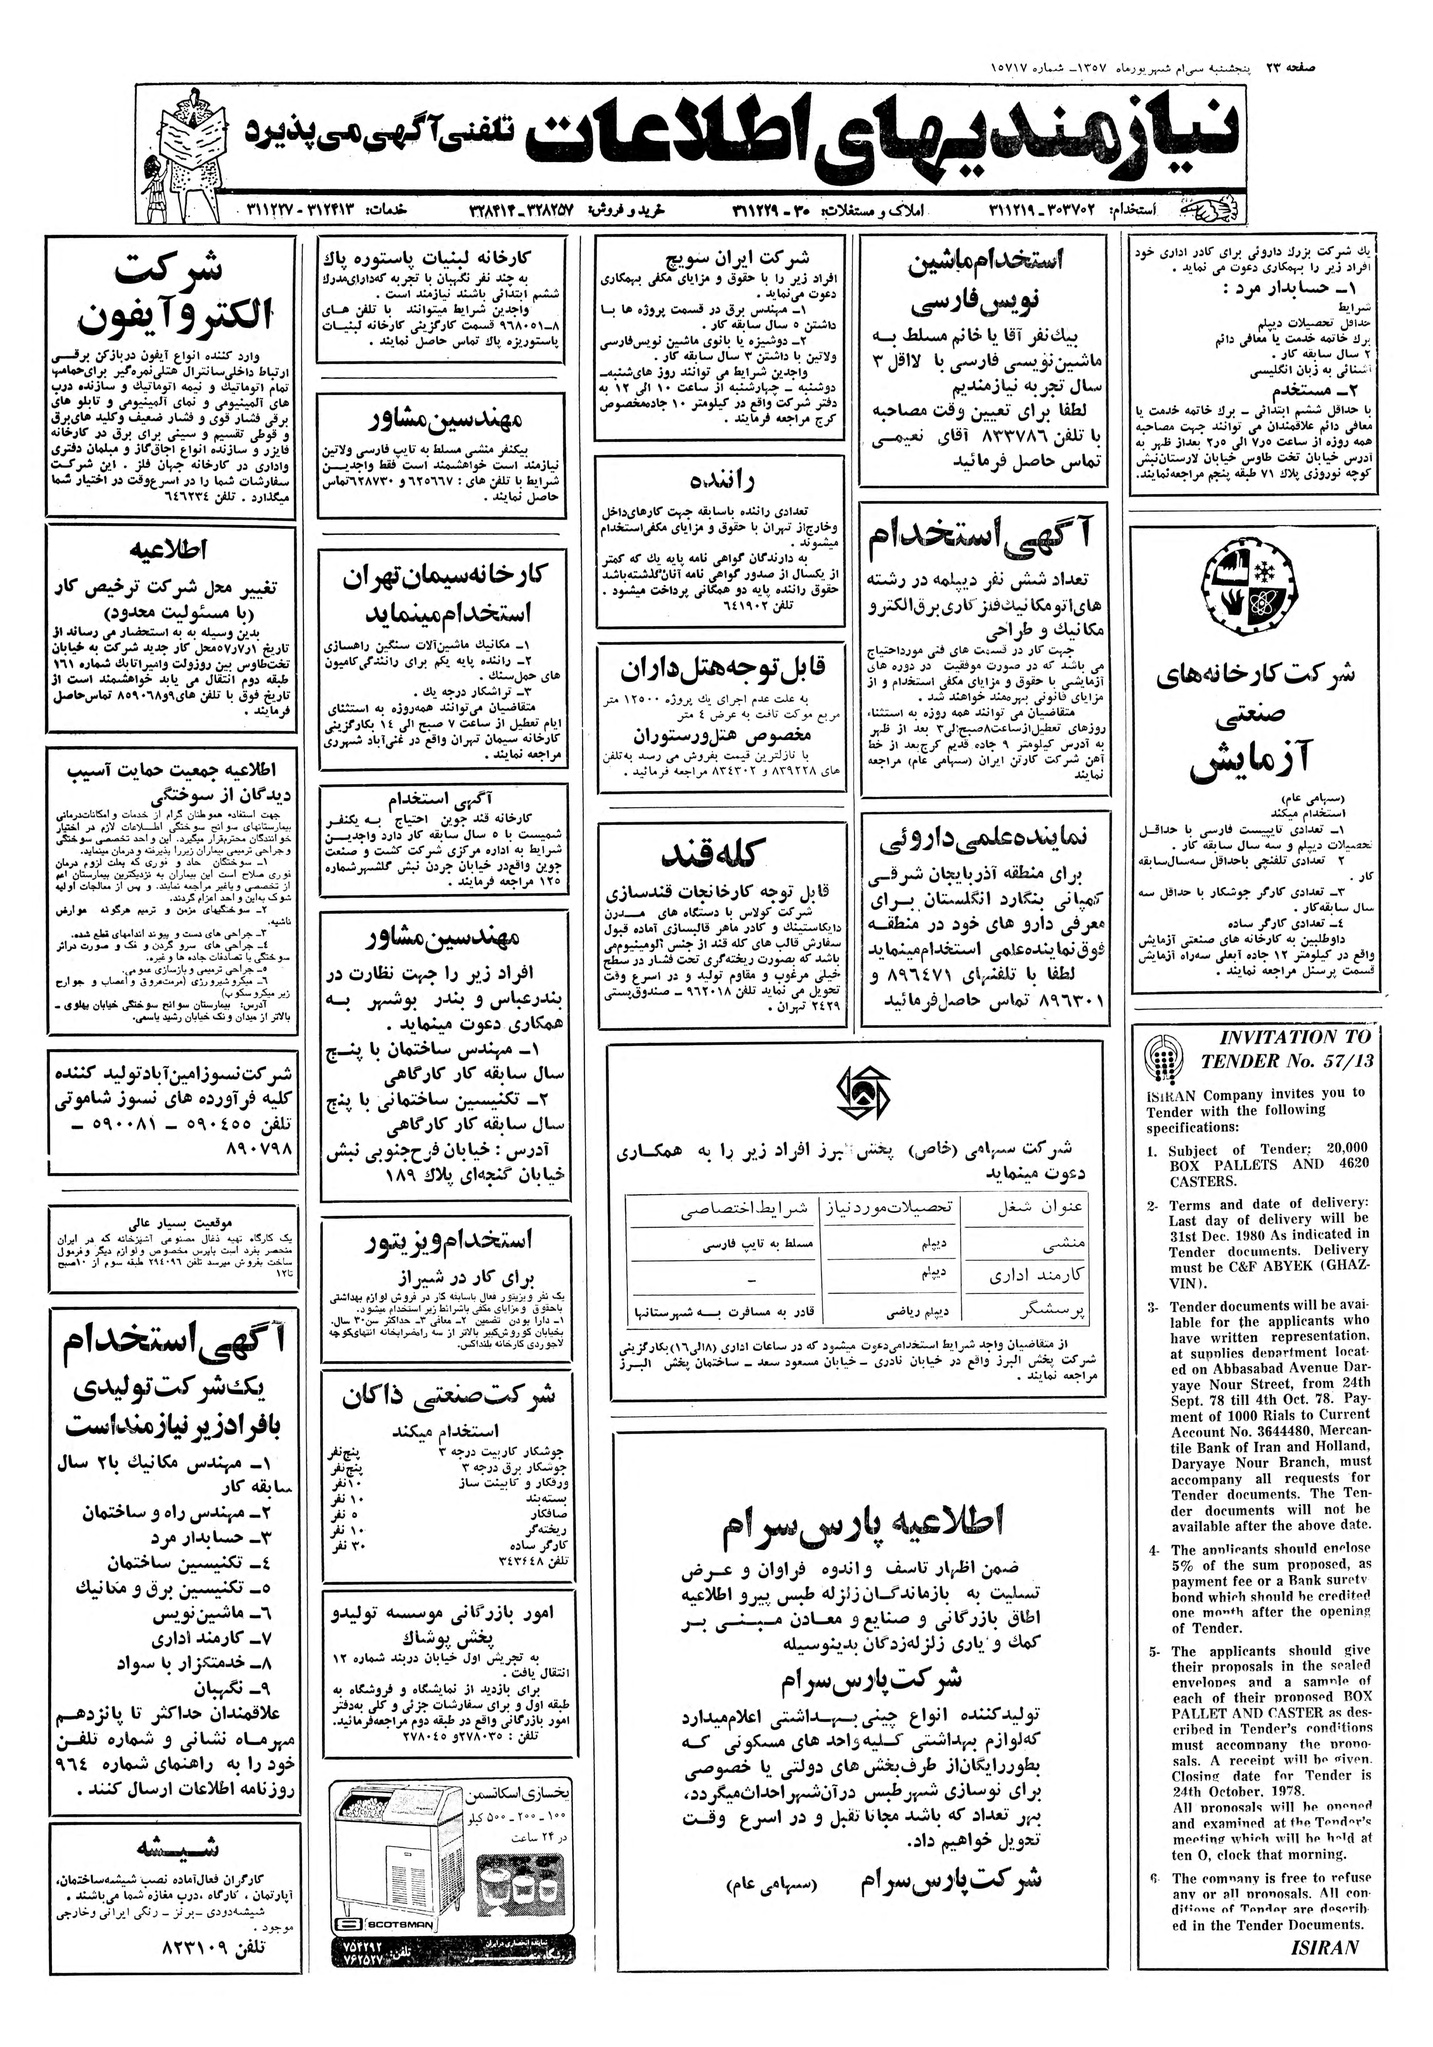 صفحه ۲۳ پنجشنبه سی‌ام شهریورماه ۱۳۵۷ـ شماره ۱۵۷۱۷
نیازمندیهای اطلاعات تلفنی آگهی می‌پذیرد
استخدام: ۳۰۳۷۰۲ـ۳۱۱۲۱۹ املاک و مستغلات: ۳۰ـ۳۱۱۲۲۹ خرید و فروش: ۳۲۸۲۵۷ـ۳۲۸۴۱۴ خدمات: ۳۱۲۴۱۳ـ۳۱۱۲۲۷
یک شرکت بزرگ داروئی برای کادر اداری خود
افراد زیر را بهمکاری دعوت می نماید .
۱ـ حسابدار مرد :
شرایط
حداقل تحصیلات دیپلم
برک خاتمه خدمت یا معافی دائم
۲ سال سابقه کار .
آشنائی به زبان انگلیسی
۲ـ مستخدم
با حداقل ششم ابتدائی ـ برك خاتمه خدمت یا
معافی دائم علاقمندان می توانند جهت مصاحبه
همه روزه از ساعت ۷ر۵ الی ۲ر۵ بعداز ظهر به
آدرس خیابان تخت طاوس خیابان لارستان‌نبش
کوچه نوروزی پلاك ۷۱ طبقه پنجم مراجعه‌نمایند.
شرکت کارخانه‌های
صنعتی
آزمایش
(سهامی عام)
استخدام میکند
۱ـ تعدادی تایپیست فارسی با حداقل
تحصیلات دیپلم و سه سال سابقه کار .
۲ تعدادی تلفنچی باحداقل سه‌سال‌سابقه
کار .
۳ـ تعدادی کارگر جوشکار با حداقل سه
سال سابقه‌کار .
۴ـ تعدادی کارگر ساده
داوطلبین به کارخانه های صنعتی آزمایش
واقع در کیلومتر ۱۲ جاده آبعلی سه‌راه آزمایش
قسمت پرسنل مراجعه نمایند .
INVITATION TO
TENDER No. 57/13
ISIRAN Company invites you to
Tender with the following
specifications:
1. Subject of Tender: 20,000
BOX PALLETS AND 4620
CASTERS.
2- Terms and date of delivery:
Last day of delivery will be
31st Dec. 1980 As indicated in
Tender documents. Delivery
must be C&F ABYEK (GHAZ-
VIN).
3- Tender documents will be avai-
lable for the applicants who
have written representation,
at supplies department locat-
ed on Abbasabad Avenue Dar-
yaye Nour Street, from 24th
Sept. 78 till 4th Oct. 78. Pay-
ment of 1000 Rials to Current
Account No. 3644480, Mercan-
tile Bank of Iran and Holland,
Daryaye Nour Branch, must
accompany all requests for
Tender documents. The Ten-
der documents will not be
available after the above date.
4- The applicants should enclose
5% of the sum proposed, as
payment fee or a Bank surety
bond which should be credited
one month after the opening
of Tender.
5- The applicants should give
their proposals in the sealed
envelopes and a sample of
each of their proposed BOX
PALLET AND CASTER as des-
cribed in Tender's conditions
must accompany the propo-
sals. A receipt will be given.
Closing date for Tender is
24th October, 1978.
All proposals will be opened
and examined at the Tender's
meeting which will be held at
ten O, clock that morning.
6- The company is free to refuse
any or all proposals. All con-
ditions of Tender are describ-
ed in the Tender Documents.
ISIRAN
استخدام ماشین
نویس فارسی
بیك‌نفر آقا یا خانم مسلط به
ماشین‌نویسی فارسی با لااقل ۳
سال تجربه نیازمندیم
لطفا برای تعیین وقت مصاحبه
با تلفن ۸۳۳۷۸۶ آقای نعیمی
تماس حاصل فرمائید
آگهی استخدام
تعداد شش نفر دیپلمه در رشته
های‌اتومکانیک‌فلزکاری‌برق‌الکترو
مکانیک و طراحی
جهت کار در قسمت های فنی مورداحتیاج
می باشد که در صورت موفقیت در دوره های
آزمایشی با حقوق و مزایای مکفی استخدام و از
مزایای قانونی بهره‌مند خواهند شد .
متقاضیان می توانند همه روزه به استثناء
روزهای تعطیل‌ازساعت۸صبح‌الی۳ بعد از ظهر
به آدرس کیلومتر ۹ جاده قدیم کرج‌بعد از خط
آهن شرکت کارتن ایران (سهامی عام) مراجعه
نمایند
نماینده علمی داروئی
برای منطقه آذربایجان شرقی
کمپانی بنگارد انگلستان برای
معرفی دارو های خود در منطقه
فوق‌نماینده‌علمی استخدام‌مینماید
لطفا با تلفنهای ۸۹۶۴۷۱ و
۸۹۶۳۰۱ تماس حاصل‌فرمائید
شرکت ایران سویچ
افراد زیر را با حقوق و مزایای مکفی بهمکاری
دعوت می‌نماید .
۱ـ مهندس برق در قسمت پروژه ها با
داشتن ۵ سال سابقه کار .
۲ـ دوشیزه یا بانوی ماشین نویس‌فارسی
ولاتین با داشتن ۳ سال سابقه کار .
واجدین شرایط می توانند روز های‌شنبه‌ـ
دوشنبه ـ چهارشنبه از ساعت ۱۰ الی ۱۲ به
دفتر شرکت واقع در کیلومتر ۱۰ جاده‌مخصوص
کرج مراجعه فرمایند .
راننده
تعدادی راننده باسابقه جهت کارهای‌داخل
وخارج‌از تهران با حقوق و مزایای مکفی‌استخدام
میشوند .
به دارندگان گواهی نامه پایه یك که کمتر
از یکسال از صدور گواهی نامه آنان‌گذشته‌باشد
حقوق راننده پایه دو همگانی پرداخت میشود .
تلفن ۶۴۱۹۰۲
قابل توجه هتل داران
به علت عدم اجرای یك پروژه ۱۲۵۰۰ متر
مربع موکت تافت به عرض ۴ متر
مخصوص هتل ورستوران
با نازلترین قیمت بفروش می رسد به‌تلفن
های ۸۳۹۲۲۸ و ۸۳۴۳۰۲ مراجعه فرمائید .
کله قند
قابل توجه کارخانجات قندسازی
شرکت کولاس با دستگاه های مدرن
دایکاستینك و کادر ماهر قالبسازی آماده قبول
سفارش قالب های کله قند از جنس آلومینیوم‌می
باشد که بصورت ریخته‌گری تحت فشار در سطح
خیلی مرغوب و مقاوم تولید و در اسرع وقت
تحویل می نماید تلفن ۹۶۲۰۱۸ ـ صندوق‌پستی
۲۴۲۹ تهران .
شرکت سهامی (خاص) پخش البرز افراد زیر را به همکاری
دعوت مینماید
عنوان شغل تحصیلات موردنیاز شرایط اختصاصی
منشی دیپلم مسلط به تایپ فارسی
کارمند اداری دیپلم ـ
پرسشگر دیپلم ریاضی قادر به مسافرت به شهرستانها
از متقاضیان واجد شرایط استخدامی‌دعوت میشود که در ساعات اداری (۸الی۱۶)بکارگزینی
شرکت پخش البرز واقع در خیابان نادری ـ خیابان مسعود سعد ـ ساختمان پخش البرز
مراجعه نمایند .
اطلاعیه پارس سرام
ضمن اظهار تاسف و اندوه فراوان و عرض
تسلیت به بازماندگان زلزله طبس پیرو اطلاعیه
اطاق بازرگانی و صنایع و معادن مبنی بر
کمك و یاری زلزله‌زدگان بدینوسیله
شرکت پارس سرام
تولیدکننده انواع چینی بهداشتی اعلام‌میدارد
که‌لوازم بهداشتی کلیه واحد های مسکونی که
بطوررایگان‌از طرف‌بخش های دولتی یا خصوصی
برای نوسازی شهرطبس درآن‌شهراحداث‌میگردد،
بهر تعداد که باشد مجانا تقبل و در اسرع وقت
تحویل خواهیم داد.
شرکت پارس سرام (سهامی عام)
کارخانه لبنیات پاستوره پاك
به چند نفر نگهبان با تجربه که‌دارای‌مدرك
ششم ابتدائی باشند نیازمند است .
واجدین شرایط میتوانند با تلفن های
۸ـ۹۶۸۰۵۱ قسمت کارگزینی کارخانه لبنیات
پاستوریزه پاك تماس حاصل نمایند .
مهندسین مشاور
بیکنفر منشی مسلط به تایپ فارسی ولاتین
نیازمند است خواهشمند است فقط واجدین
شرایط با تلفن های : ۶۲۵۶۶۷ و ۶۲۸۷۳۰تماس
حاصل نمایند .
کارخانه سیمان تهران
استخدام مینماید
۱ـ مکانیك ماشین‌آلات سنگین راهسازی
۲ـ راننده پایه یکم برای رانندگی‌کامیون
های حمل‌سنك .
۳ـ تراشکار درجه یك .
متقاضیان می‌توانند همه‌روزه به استثنای
ایام تعطیل از ساعت ۷ صبح الی ۱۴ بکارگزینی
کارخانه سیمان تهران واقع در غنی‌آباد شهرری
مراجعه نمایند .
آگهی استخدام
کارخانه قند جوین احتیاج به یکنفر
شمیست با ۵ سال سابقه کار دارد واجدین
شرایط به اداره مرکزی شرکت کشت و صنعت
جوین واقع‌در خیابان جردن نبش گلشهرشماره
۱۲۵ مراجعه فرمایند .
مهندسین مشاور
افراد زیر را جهت نظارت در
بندرعباس و بندر بوشهر به
همکاری دعوت مینماید .
۱ـ مهندس ساختمان با پنج
سال سابقه کار کارگاهی
۲ـ تکنیسین ساختمانی با پنج
سال سابقه کار کارگاهی
آدرس : خیابان فرح‌جنوبی نبش
خیابان گنجه‌ای پلاك ۱۸۹
استخدام ویزیتور
برای کار در شیراز
یك نفر ویزیتور فعال باسابقه کار در فروش لوازم بهداشتی
باحقوق و مزایای مکفی باشرائط زیر استخدام میشود.
۱ـ دارا بودن تضمین ۲ـ معافی ۳ـ حداکثر سن۳۰ سال.
بخیابان کوروش‌کبیر بالاتر از سه راه‌ضرابخانه انتهای‌کوچه
لاجوردی کارخانه بلنداکس.
شرکت صنعتی ذاکان
استخدام میکند
جوشکار کاربیت درجه ۳ پنج‌نفر
جوشکار برق درجه ۳ پنج‌نفر
ورقکار و کابینت ساز ۱۰نفر
بسته‌بند ۱۰ نفر
صافکار ۵ نفر
ریخته‌گر ۱۰ نفر
کارگر ساده ۳۰ نفر
تلفن ۳۴۳۶۴۸
امور بازرگانی موسسه تولیدو
پخش پوشاك
به تجریش اول خیابان دربند شماره ۱۲
انتقال یافت .
برای بازدید از نمایشگاه و فروشگاه به
طبقه اول و برای سفارشات جزئی و کلی به‌دفتر
امور بازرگانی واقع در طبقه دوم مراجعه‌فرمائید.
تلفن : ۲۷۸۰۳۵و ۲۷۸۰۴۵
یخسازی اسکاتسمن
۱۰۰ ـ ۲۰۰ ـ ۵۰۰ کیلو
در ۲۴ ساعت
SCOTSMAN
نماینده انحصاری درایران
فروشگاه
تلفن: ۷۵۴۲۹۲
۷۶۲۵۲۷
شرکت
الکتروآیفون
وارد کننده انواع آیفون دربازکن برقی
ارتباط داخلی‌سانترال هتلی‌نمره‌گیر برای‌حمامها
تمام اتوماتیك و نیمه اتوماتیك و سازنده درب
های آلمینیومی و نمای آلمینیومی و تابلو های
برقی فشار قوی و فشار ضعیف وکلید های‌برق
و قوطی تقسیم و سینی برای برق در کارخانه
فایزر و سازنده انواع اجاق‌گاز و مبلمان دفتری
واداری در کارخانه جهان فلز . این شرکت
سفارشات شما را در اسرع‌وقت در اختیار شما
میگذارد . تلفن ۶۴۶۲۳۴
اطلاعیه
تغییر محل شرکت ترخیص کار
(با مسئولیت محدود)
بدین وسیله به به استحضار می رساند از
تاریخ ۱ر۷ر۵۷محل کار جدید شرکت به خیابان
تخت‌طاوس بین روزولت وامیراتابك شماره ۱۶۱
طبقه دوم انتقال می یابد خواهشمند است از
تاریخ فوق با تلفن های۹و۸۵۹۰۶۸ تماس‌حاصل
فرمایند .
اطلاعیه جمعیت حمایت آسیب
دیدگان از سوختگی
جهت استفاده هموطنان گرام از خدمات وامکانات‌درمانی
بیمارستانهای سوانح سوختگی اطلاعات لازم در اختیار
خوانندگان محترم‌قرار میگیرد. این واحد تخصصی سوختگی
و جراحی ترمیمی بیماران زیررا پذیرفته و درمان مینماید.
۱ـ سوختگان حاد و نوری که بعلت لزوم درمان
نوری صلاح است این بیماران به نزدیکترین بیمارستان اعم
از تخصصی و یاغیر مراجعه نمایند. و پس از معالجات اولیه
شوك به‌این و احد اعزام گردند.
۲ـ سوختگیهای مزمن و ترمیم هرگونه عوارض
ناشیه.
۳ـ جراحی های دست و پیوند اندامهای قطع شده.
۴ـ جراحی های سرو گردن و فك و صورت دراثر
سوختگی یا تصادفات جاده ها و غیره.
۵ـ جراحی ترمیمی و بازسازی عمومی.
۶ـ میکرو شیرورژی (مرمت‌عروق و اعصاب و جوارح
زیر میکروسکوپ)
آدرس: بیمارستان سوانح سوختگی خیابان پهلوی ـ
بالاتر از میدان ونک خیابان رشید یاسمی.
شرکت نسوزامین‌آبادتولید کننده
کلیه فرآورده های نسوز شاموتی
تلفن ۵۹۰۴۵۵ ـ ۵۹۰۰۸۱ ـ
۸۹۰۷۹۸
موقعیت بسیار عالی
یك کارگاه تهیه ذغال مصنوعی آشپزخانه که در ایران
منحصر بفرد است باپرس مخصوص و لوازم دیگر وفرمول
ساخت بفروش میرسد تلفن ۲۹۴۰۹۶ طبقه سوم از ۱۰صبح
تا۱۲
آگهی استخدام
یک شرکت تولیدی
بافرادزیر نیازمنداست
۱ـ مهندس مکانیك با۲ سال
سابقه کار
۲ـ مهندس راه و ساختمان
۳ـ حسابدار مرد
۴ـ تکنیسین ساختمان
۵ـ تکنیسین برق و مکانیك
۶ـ ماشین‌نویس
۷ـ کارمند اداری
۸ـ خدمتگزار با سواد
۹ـ نگهبان
علاقمندان حداکثر تا پانزدهم
مهرماه نشانی و شماره تلفن
خود را به راهنمای شماره ۹۶۴
روزنامه اطلاعات ارسال کنند .
شیشه
کارگران فعال‌آماده نصب شیشه‌ساختمان،
آپارتمان ، کارگاه ،درب مغازه شما می‌باشند .
شیشه‌دودی ـ برنز ـ رنگی ایرانی وخارجی
موجود .
تلفن ۸۲۳۱۰۹